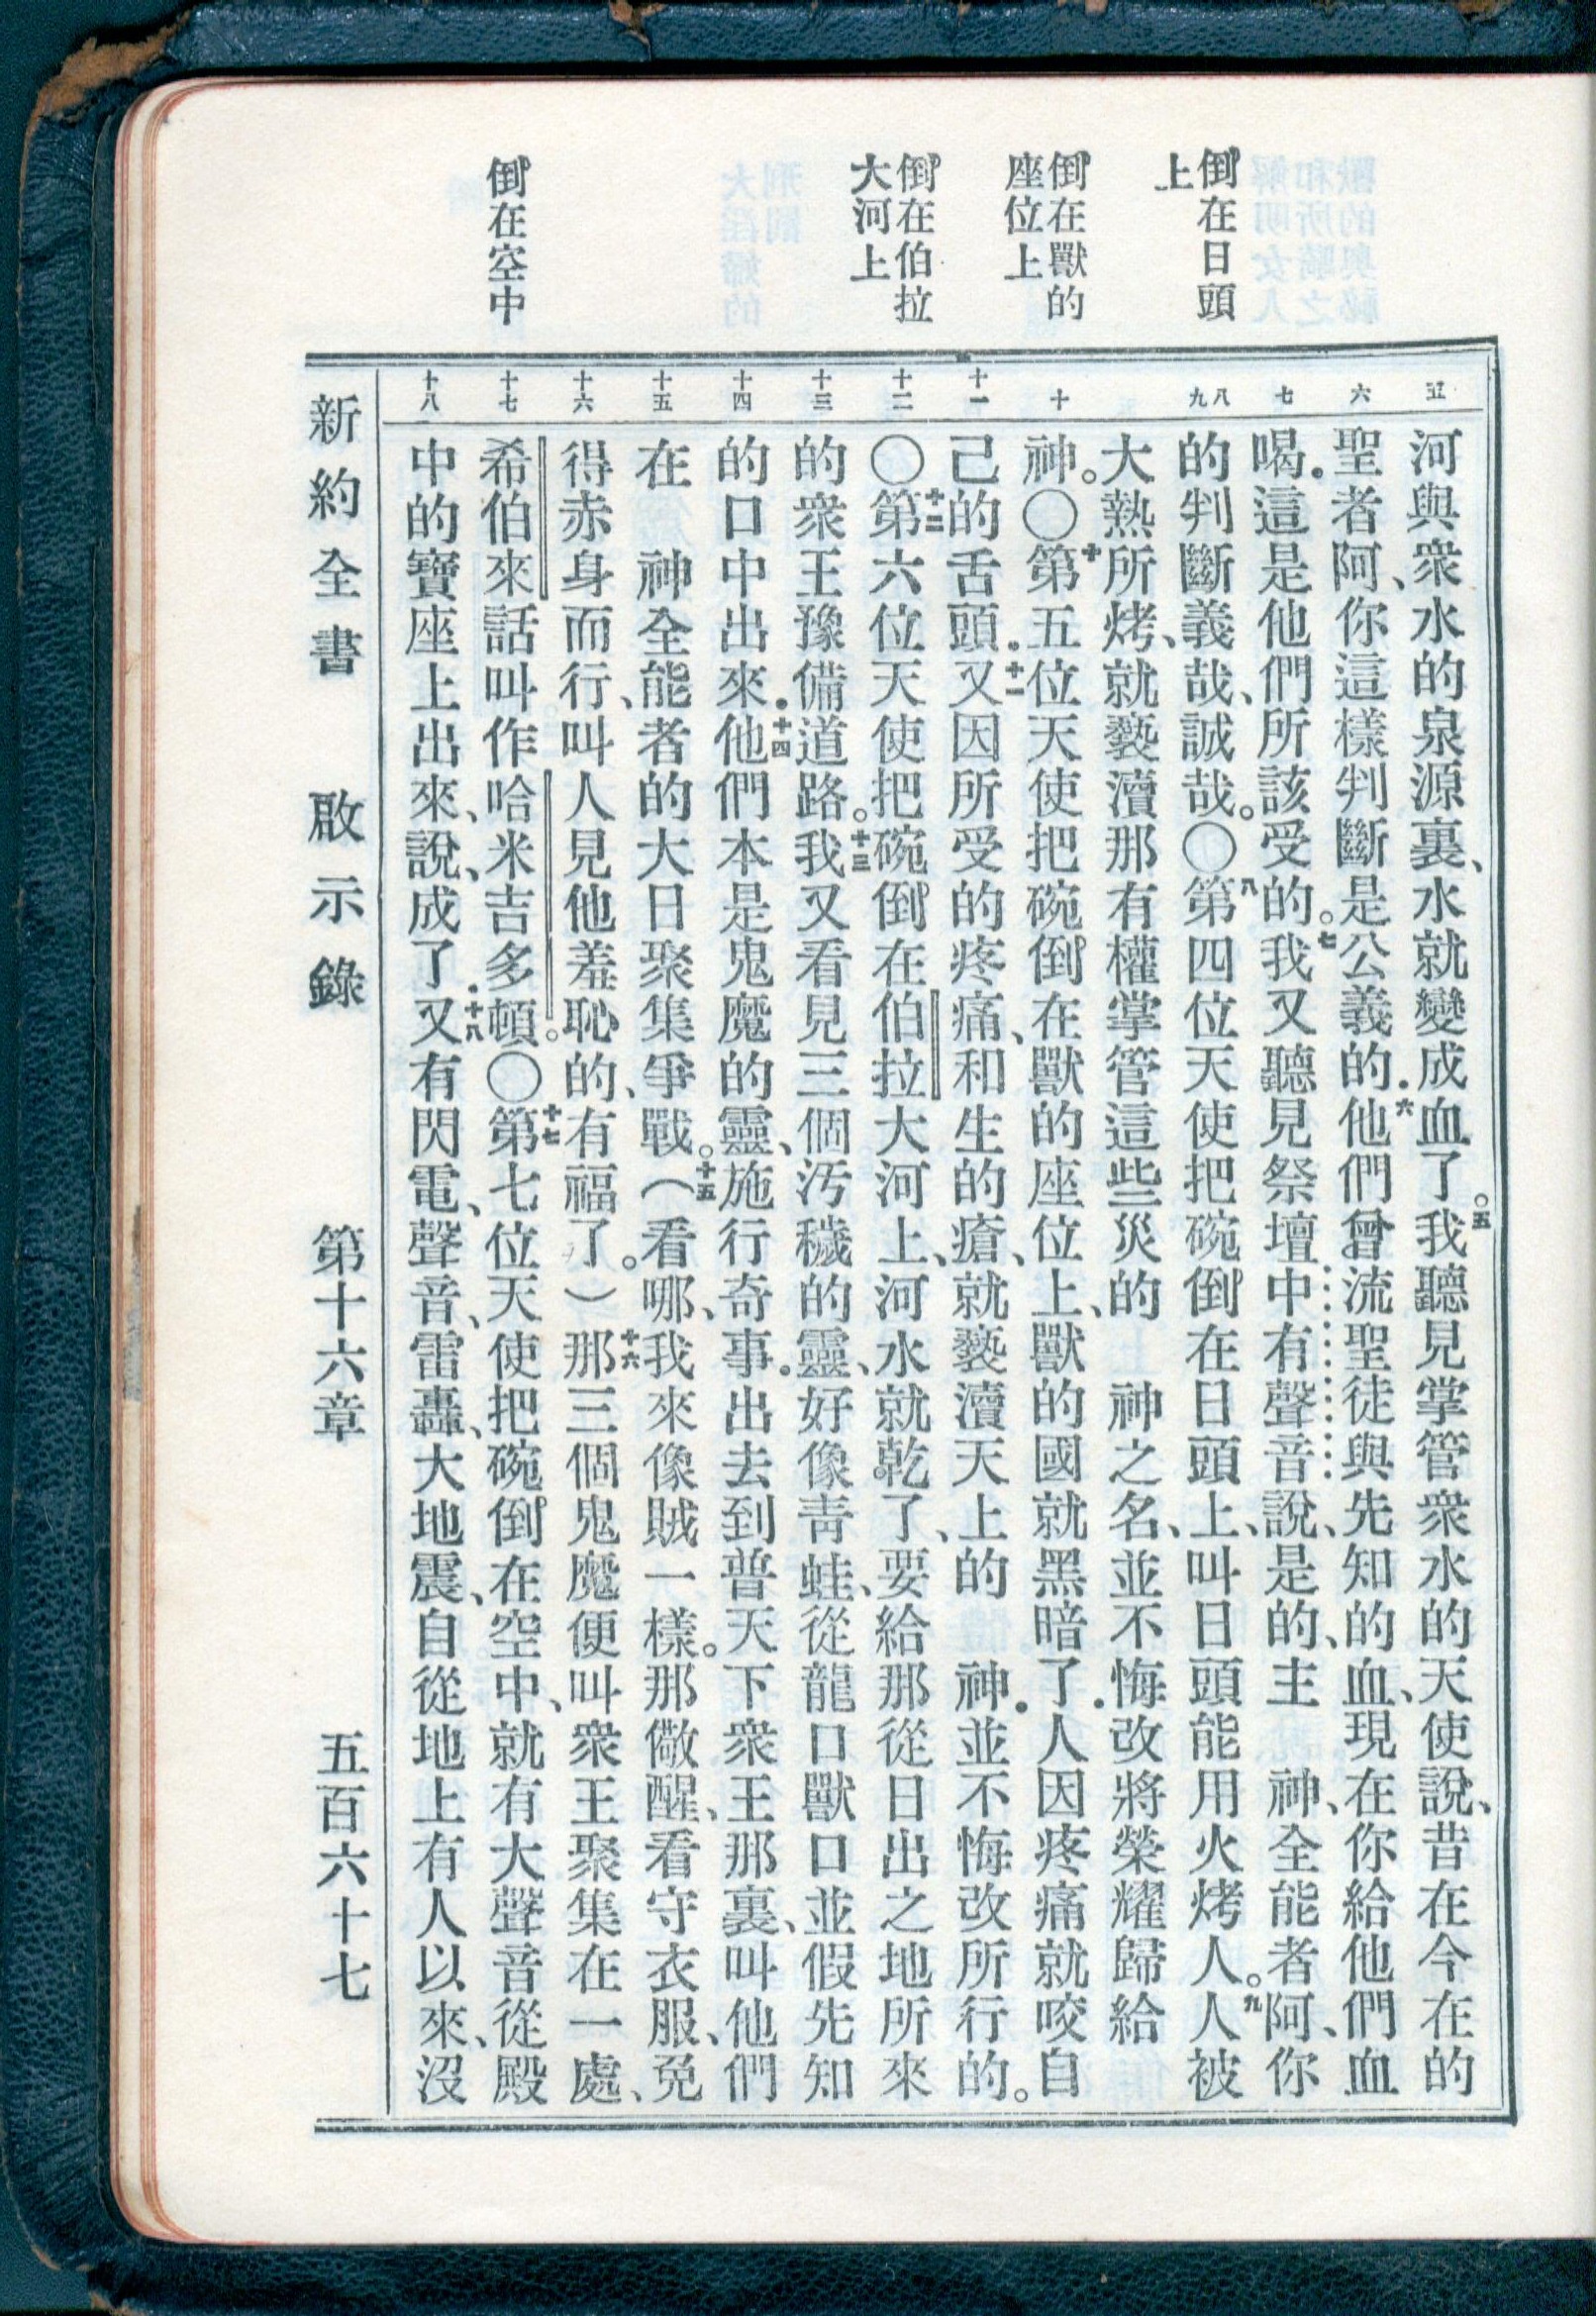 倒在日頭
上
倒在獸的
座位上
倒在伯拉
大河上
倒在空中
五
六
七
八
九
十
十一
十二
十三
十四
十五
十六
十七
十八
河與衆水的泉源裏、水就變成血了。五我聽見掌管衆水的天使說、昔在今在的
聖者阿、你這樣判斷是公義的．六他們曾流聖徒與先知的血、現在你給他們血
喝．這是他們所該受的。七我又聽見祭壇中有聲音說、是的、主　神、全能者阿、你
的判斷義哉、誠哉。〇八第四位天使把碗倒在日頭上、叫日頭能用火烤人。九人被
大熱所烤、就褻瀆那有權掌管這些災的　神之名、並不悔改將榮耀歸給
神。〇十第五位天使把碗倒在獸的座位上、獸的國就黑暗了．人因疼痛就咬自
己的舌頭．十一又因所受的疼痛、和生的瘡、就褻瀆天上的　神．並不悔改所行的。
〇十二第六位天使把碗倒在伯拉大河上、河水就乾了、要給那從日出之地所來
的衆王豫備道路。十三我又看見三個汚穢的靈、好像靑蛙、從龍口獸口並假先知
的口中出來．十四他們本是鬼魔的靈、施行奇事．出去到普天下衆王那裏、叫他們
在　神全能者的大日聚集爭戰。十五（看哪、我來像賊一樣。那儆醒、看守衣服、免
得赤身而行、叫人見他羞恥的、有福了。）十六那三個鬼魔便叫衆王聚集在一處、
希伯來話叫作哈米吉多頓。〇十七第七位天使把碗倒在空中、就有大聲音從殿
中的寶座上出來、說、成了．十八又有閃電、聲音、雷轟、大地震、自從地上有人以來、沒
新約全書　啟示錄　第十六章　五百六十七